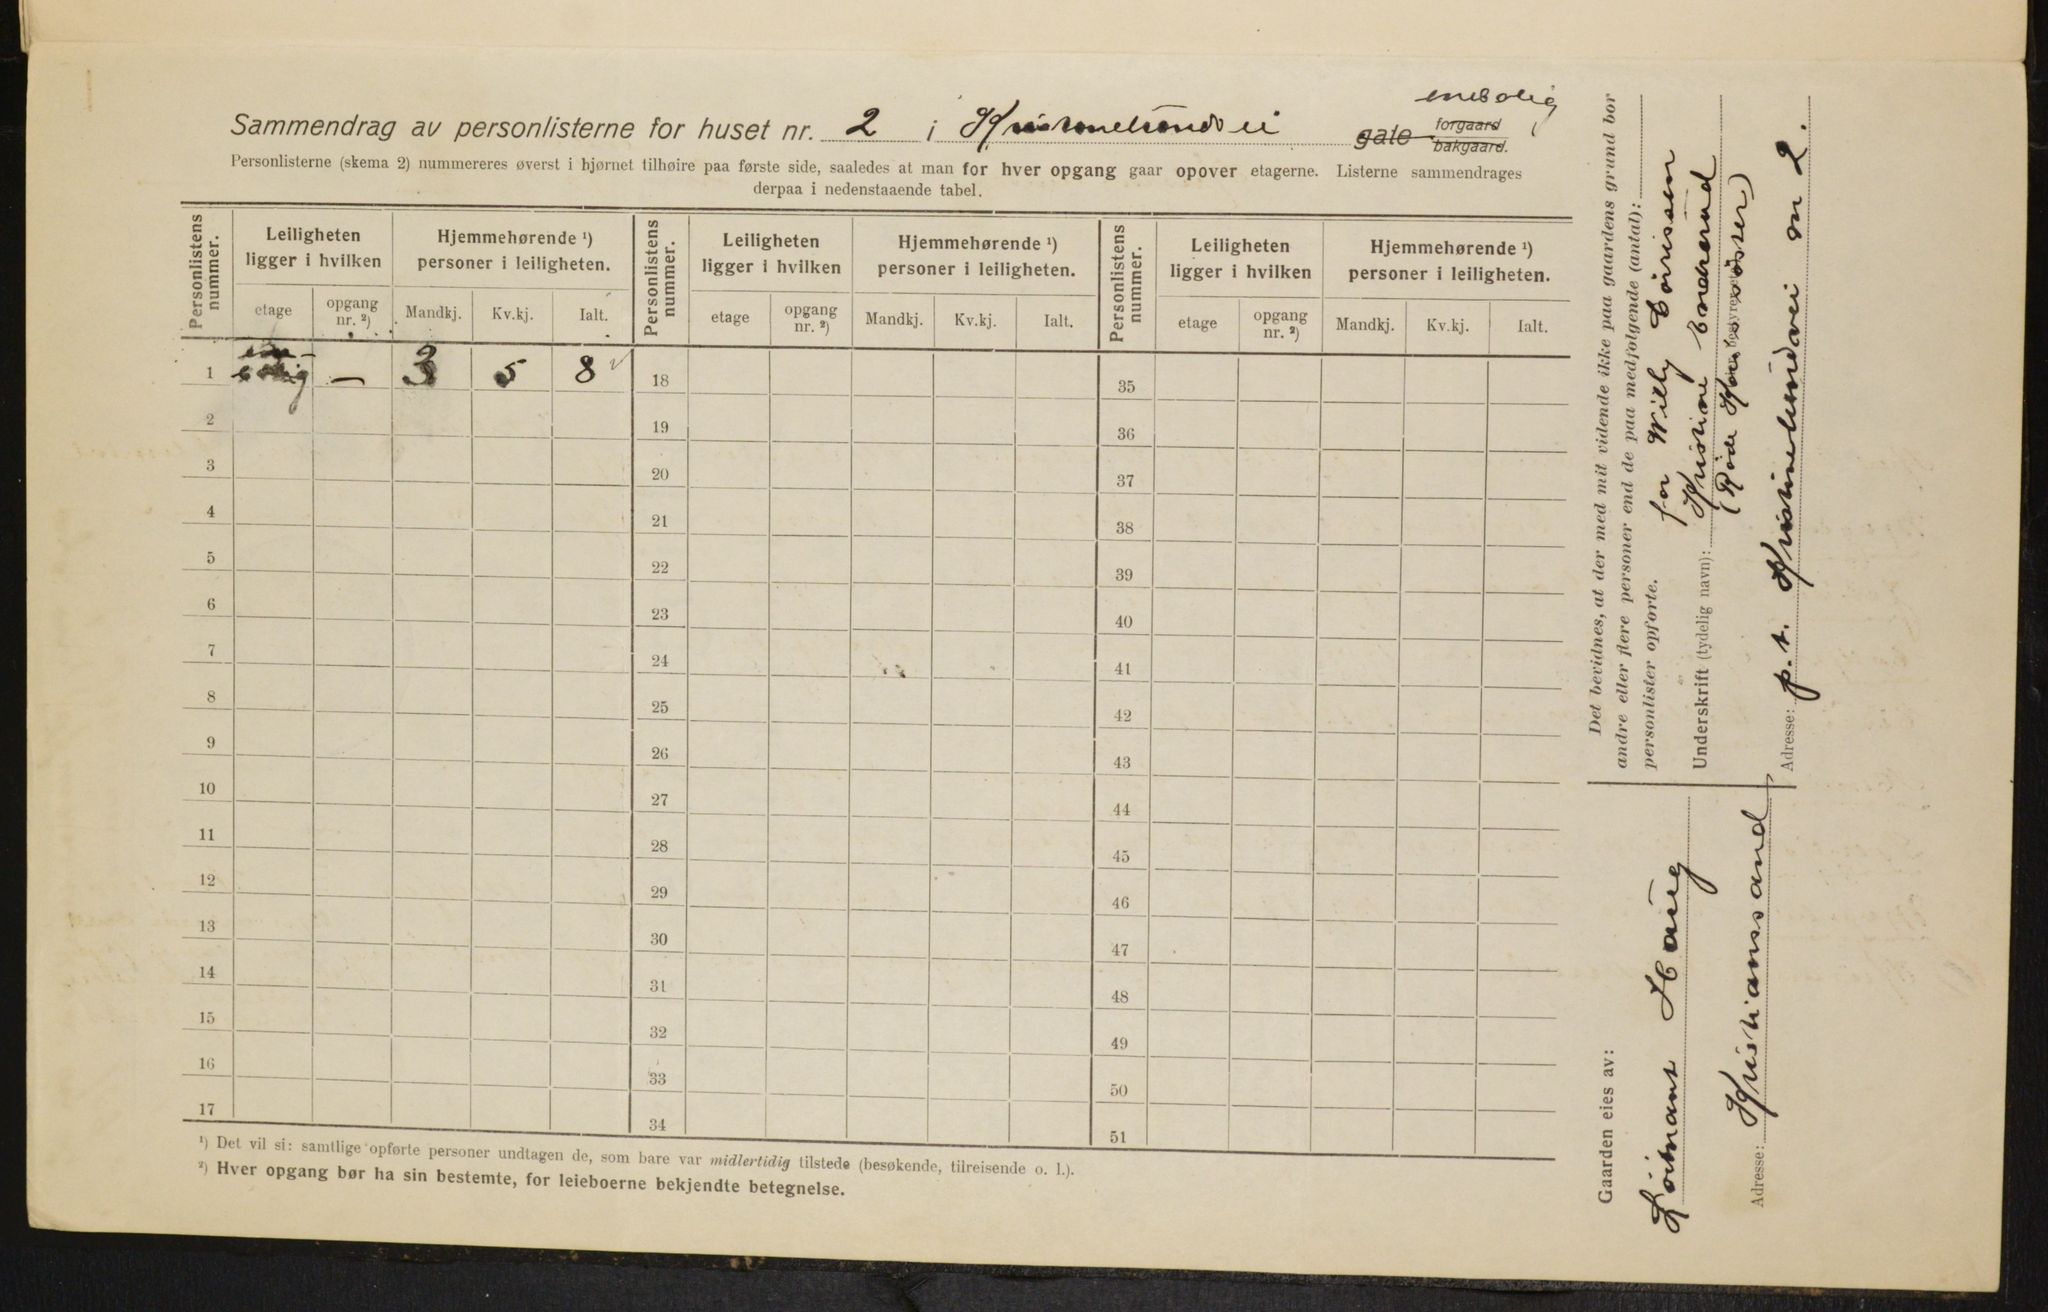 enebolig
Sammendrag av personlisterne for huset nr. 2 i Kristinelundvei gate forgaard bakgaard.
Personlisterne (skema 2) nummereres øverst i hjørnet tilhøire paa første side, saaledes at man for hver opgang gaar opover etagerne. Listerne sammendrages
derpaa i nedenstaaende tabel.
Personlistens nummer. Leiligheten ligger i hvilken Hjemmehørende ¹) personer i leiligheten. Personlistens nummer. Leiligheten ligger i hvilken Hjemmehørende ¹) personer i leiligheten. Personlistens nummer. Leiligheten ligger i hvilken Hjemmehørende ¹) personer i leiligheten.
etage opgang nr. ²) Mandkj. Kv.kj. Ialt. etage opgang nr. ²) Mandkj. Kv.kj. Ialt. etage opgang nr. ²) Mandkj. Kv.kj. Ialt.
1 ene-bolig — 3 5 8 18 35
2 19 36
3 20 37
4 21 38
5 22 39
6 23 40
7 24 41
8 25 42
9 26 43
10 27 44
11 28 45
12 29 46
13 30 47
14 31 48
15 32 49
16 33 50
17 34 51
¹) Det vil si: samtlige opførte personer undtagen de, som bare var midlertidig tilstede (besøkende, tilreisende o. l.).
²) Hver opgang bør ha sin bestemte, for leieboerne bekjendte betegnelse.
Det bevidnes, at der med mit vidende ikke paa gaardens grund bor
andre eller flere personer end de paa medfølgende (antal):
personlister opførte.
for Willy
Underskrift (tydelig navn): Kristine
(Røde Kors søster)
Adresse: p.t. Kristinelundvei nr 2.
Gaarden eies av:
Löitnant Haug
Adresse: Kristianssand